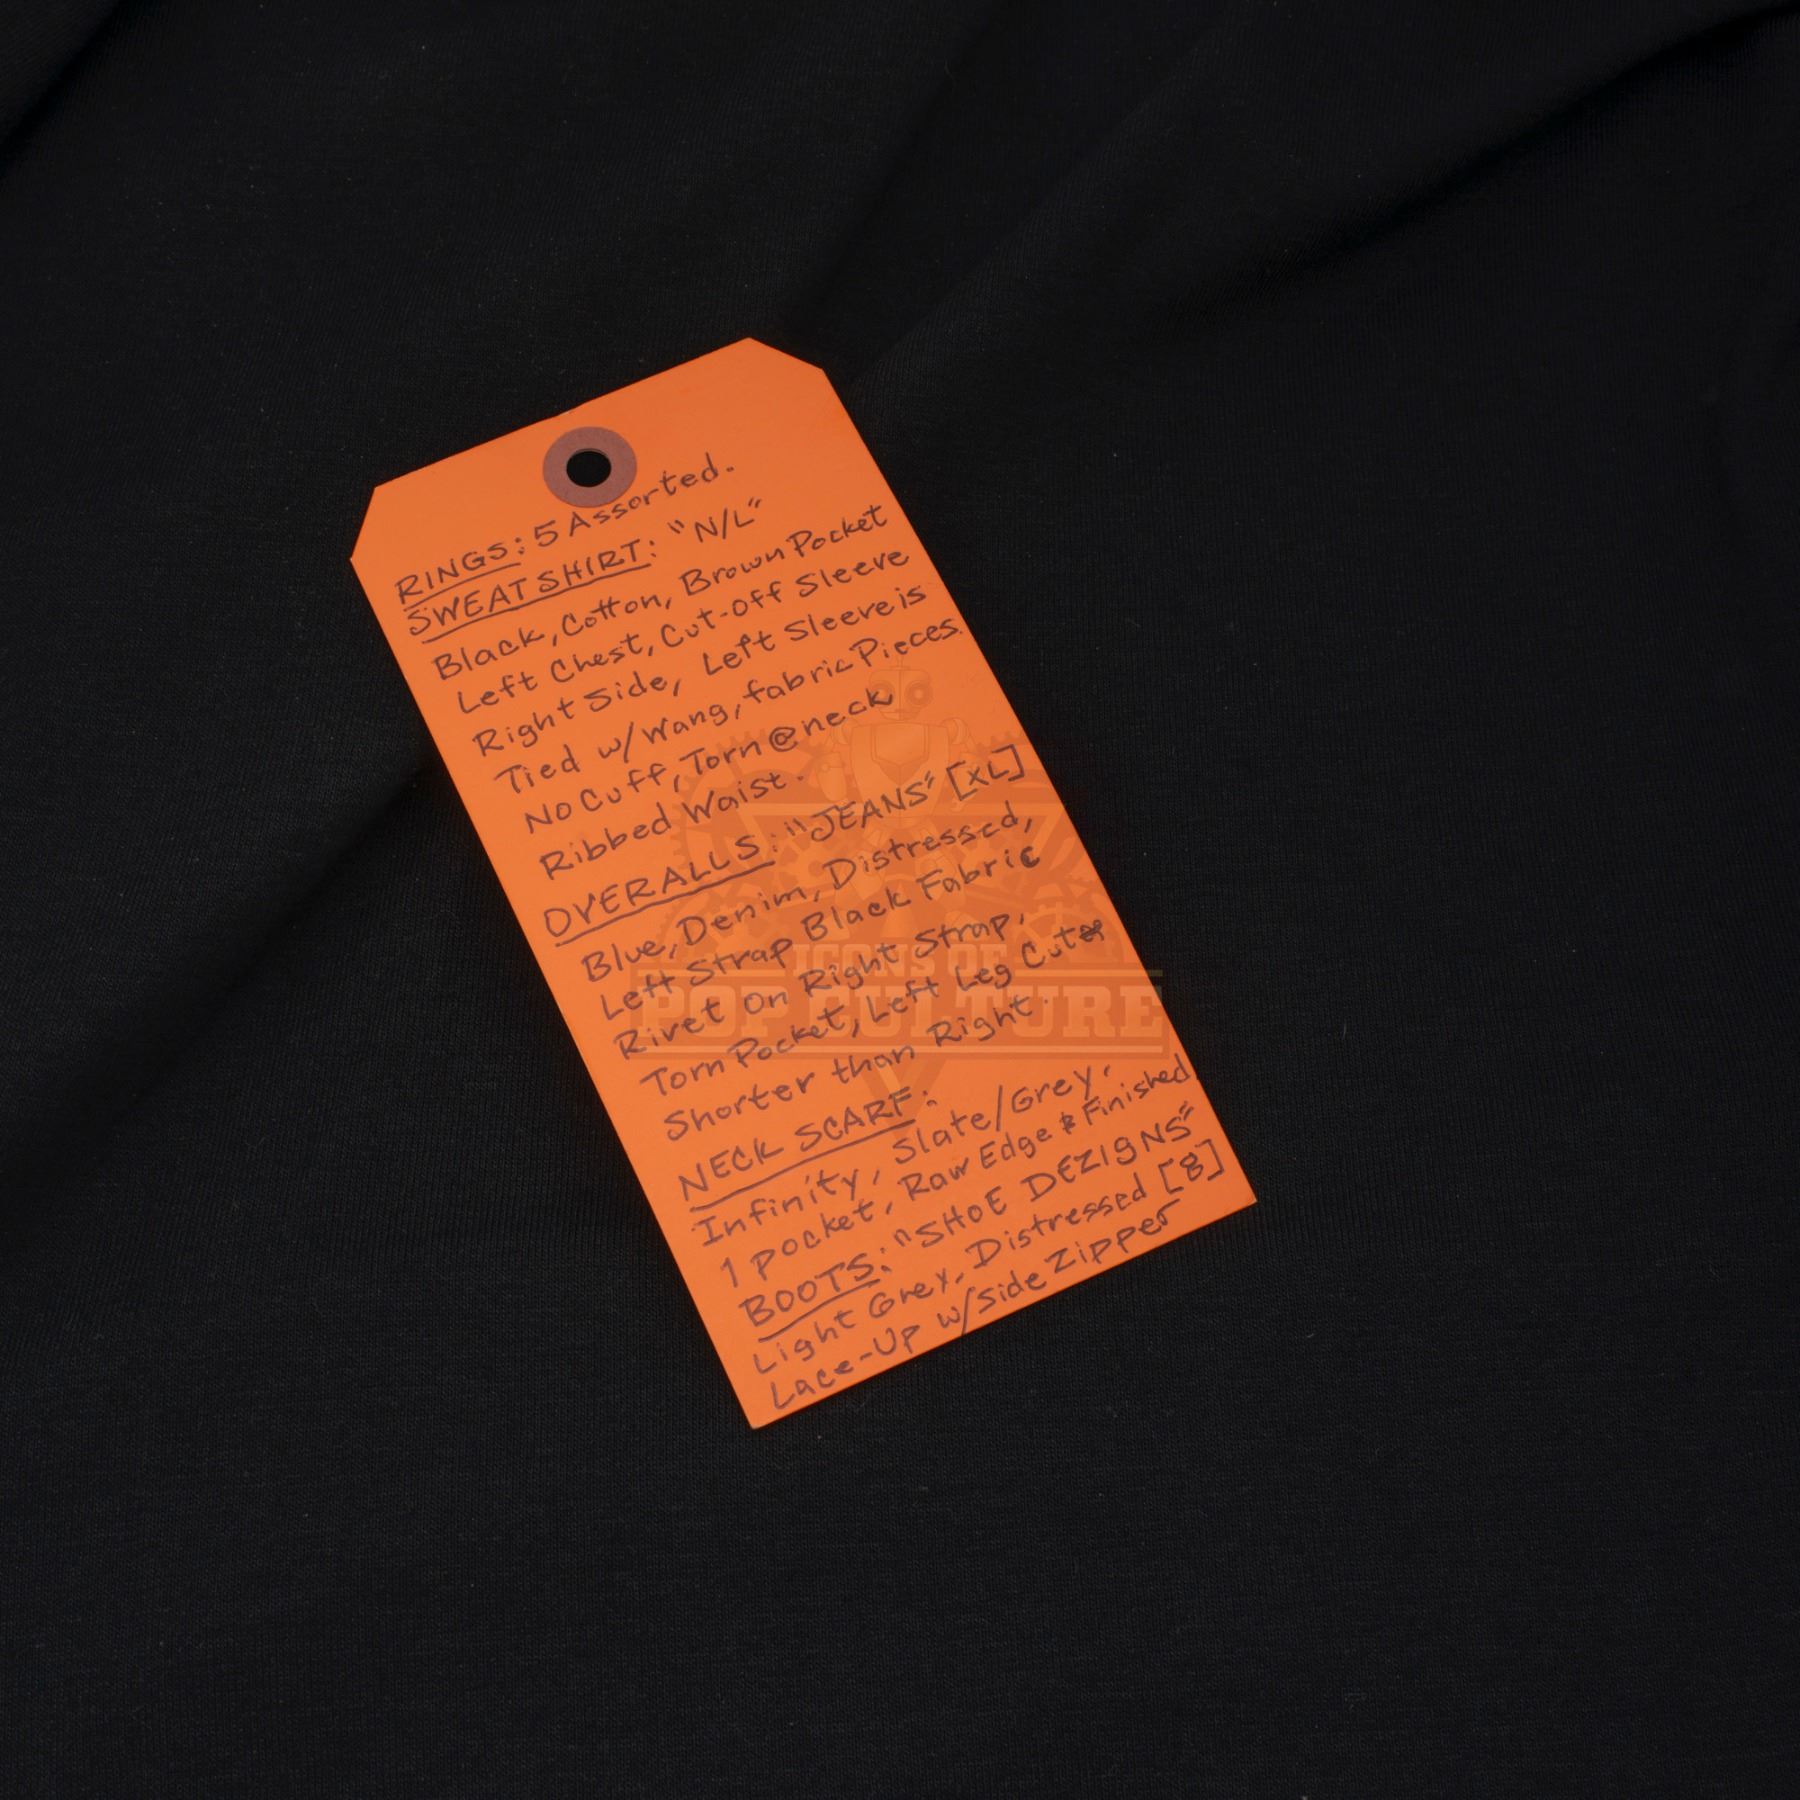 RINGS: 5 Assorted.
SWEATSHIRT: "N/L"
Black, Cotton, Brown Pocket
Left Chest, Cut-off Sleeve
Right Side, Left Sleeve is
Tied w/Wang, fabric Pieces.
No Cuff, Torn @ neck
Ribbed Waist.
OVERALLS: "JEANS" [XL]
Blue, Denim, Distressed,
Left Strap Black Fabric
Rivet On Right Strap,
Torn Pocket, Left Leg Cut
Shorter than Right.
NECK SCARF:
Infinity, Slate/Grey,
1 Pocket, Raw Edge & Finished
BOOTS: "SHOE DEZIGNS"
Light Grey, Distressed [8]
Lace-Up w/Side Zipper
ICONS OF
POP CULTURE